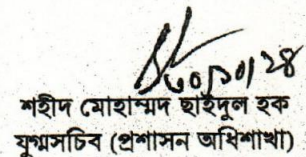 শহীদ মোহাম্মদ ছাইদুল হক
যুগ্মসচিব (প্রশাসন অধিশাখা)